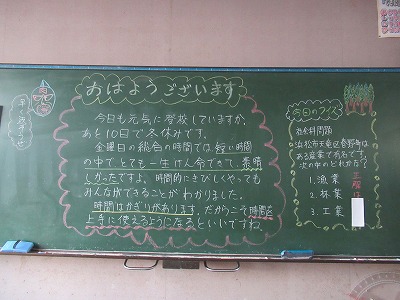 おはようございます
今日も元気に登校していますか。
あと10日で冬休みです。
金曜日の総合の時間では短い時間
の中でとても一生けん命できて、素晴
しかったですよ。時間的にきびしくやっても
みんなができることがわかりました。
時間はかぎりがあります。だからこそ時間を
上手に使えるようになるといいですね。
今日のクイズ
社会科問題
浜松市天竜区春野町は
ある産業で有名です。
次の中のどれか方?
1. 漁業
2. 林業
3. 工業
正解は